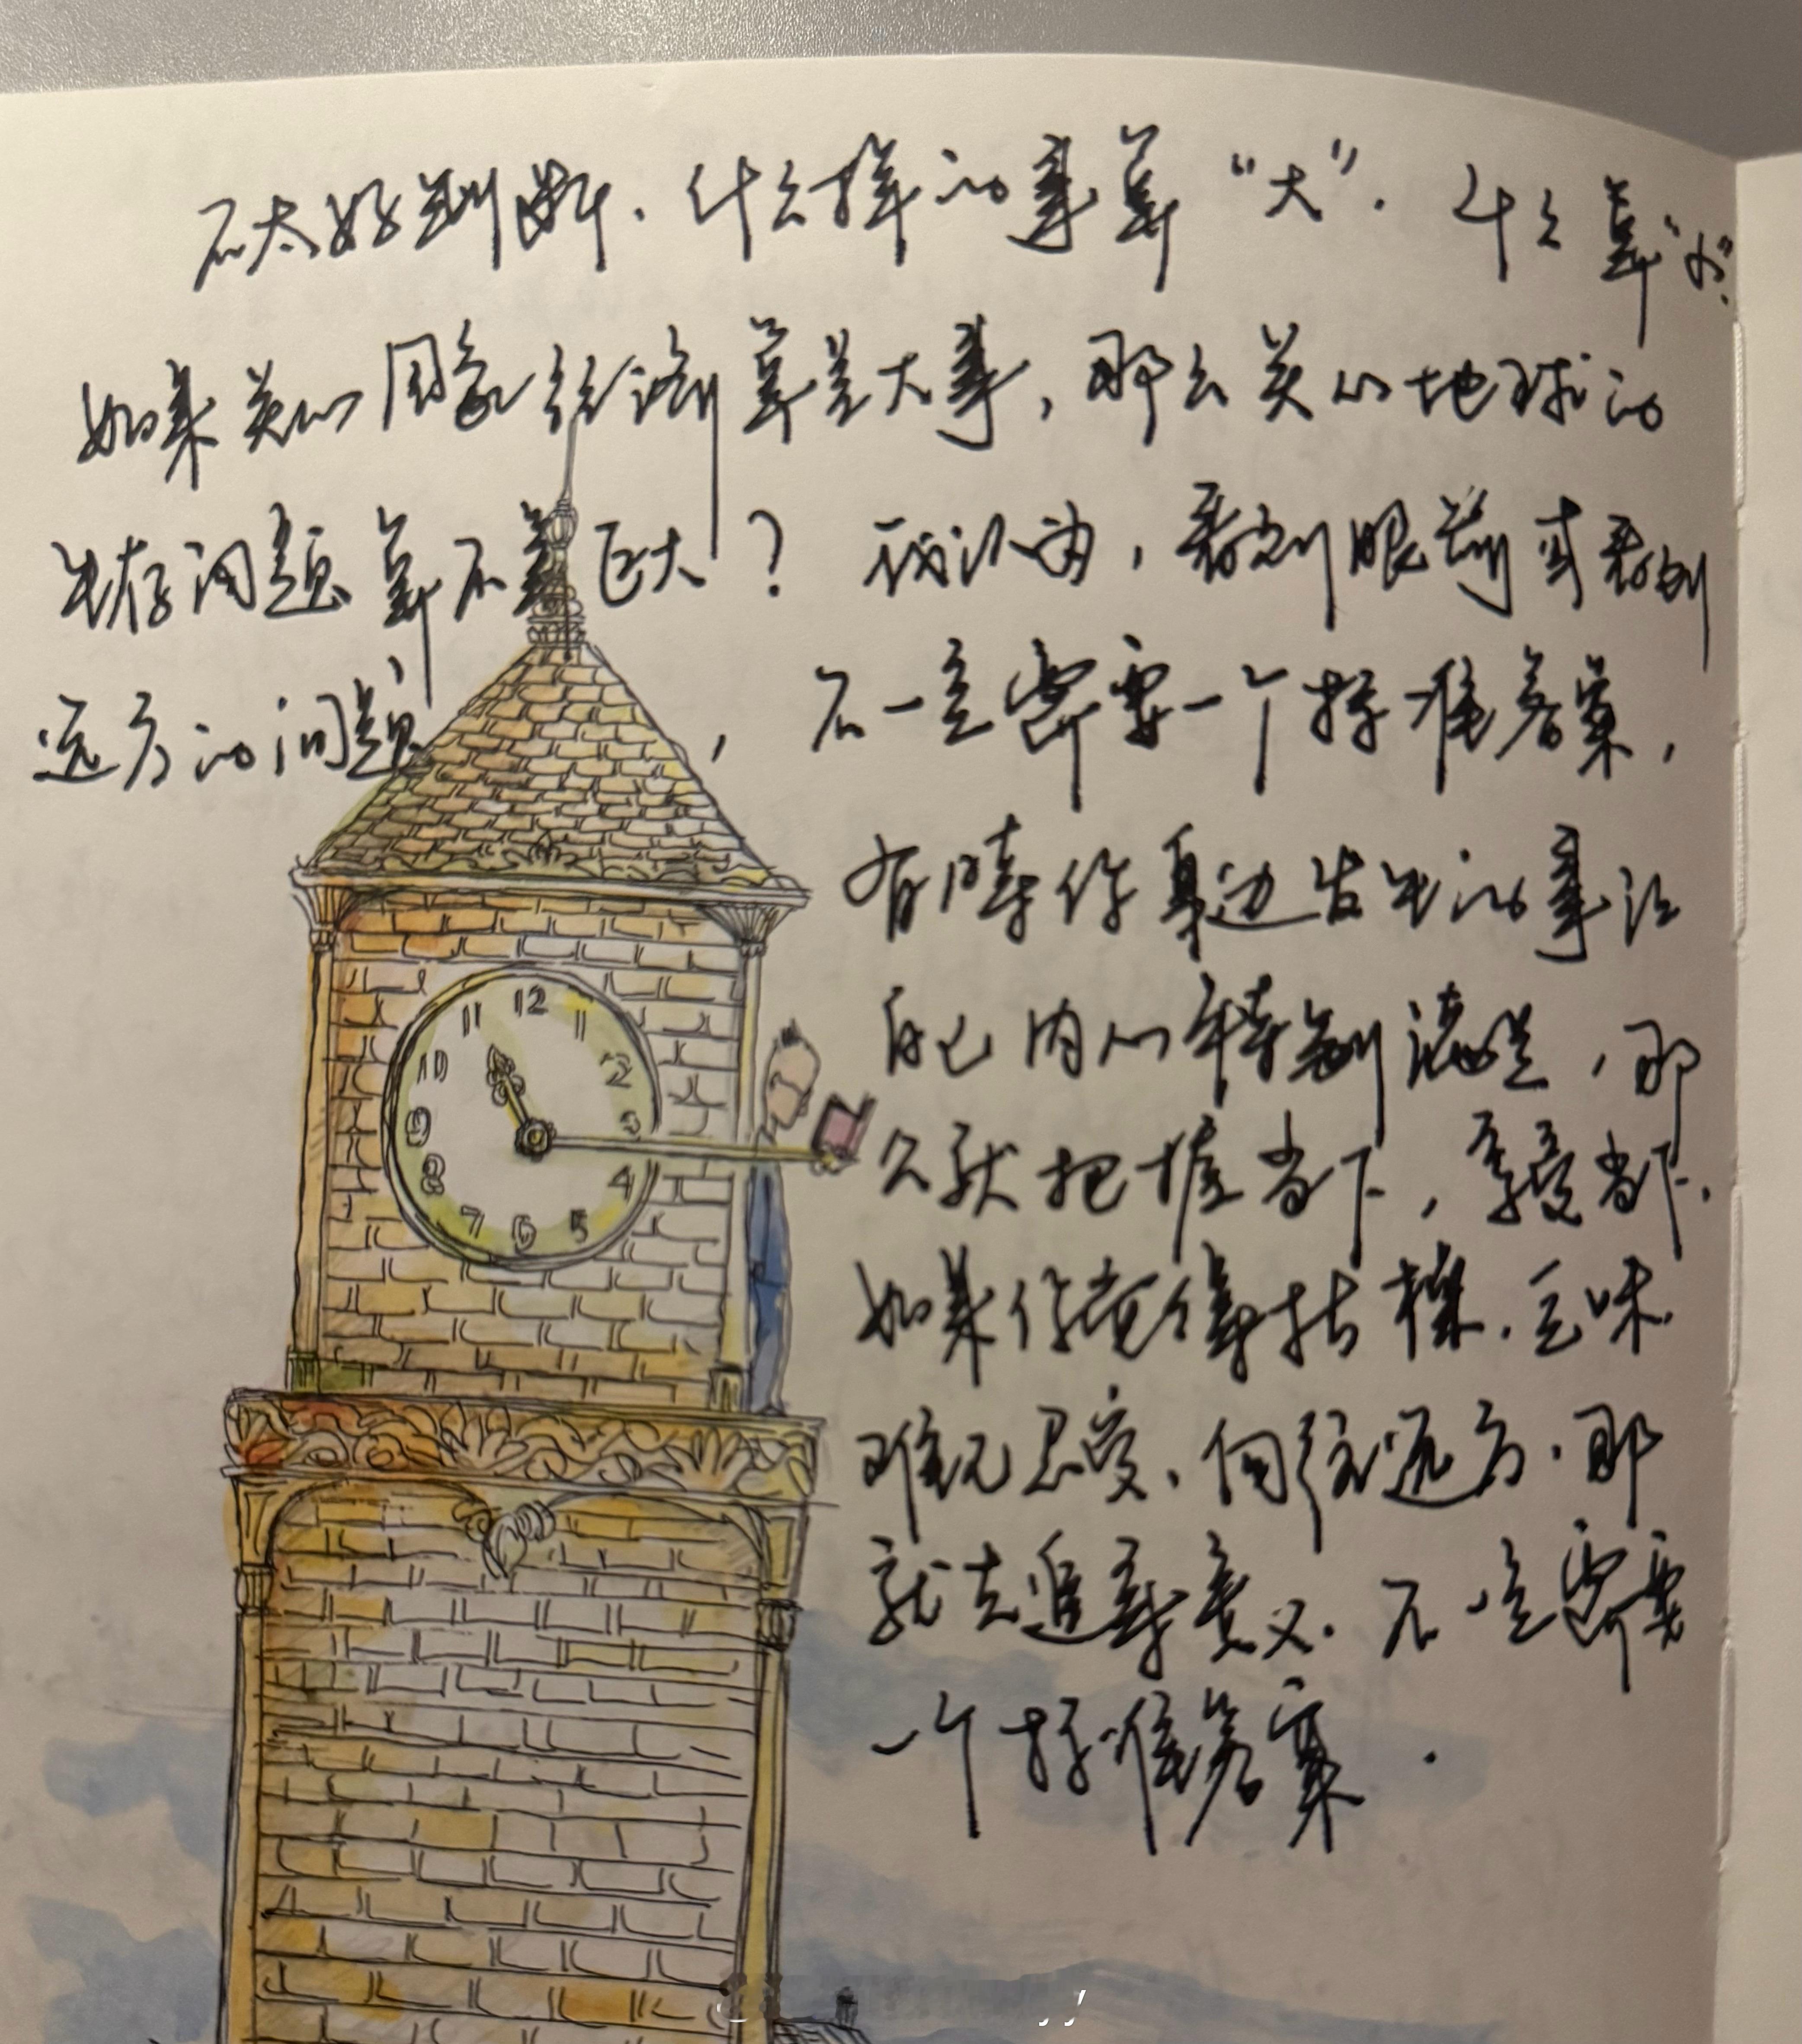 不太好判断.什么样的事算“大”.什么算“小”.
如果关心国家经济算是大事,那么关心地球的
生存问题算不算巨大?我认为,看到眼前或看到
远方的问题,不一定需要一个标准答案,
有时你身边发生的事让
自己内心特别满足,那
么就把握当下,享受当下.
如果你觉得枯燥.乏味.
难忍忍受.向往远方.那
就去追寻意义.不一定需要
一个标准答案.
12
11
10
2
9
3
8
4
7
6
5